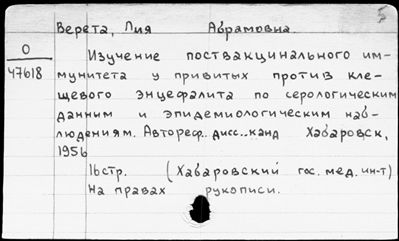 5
Верета, Лия Абрамовна.
О
47618
Изучение поствакцинального им-
мунитета у привитых против кле-
щевого энцефалита по серологическим
данным и эпидемиологическим наб-
людениям. Автореф. дисс..канд Хабаровск,
1956
16стр. (Хабаровский гос. мед. ин-т)
На правах рукописи.